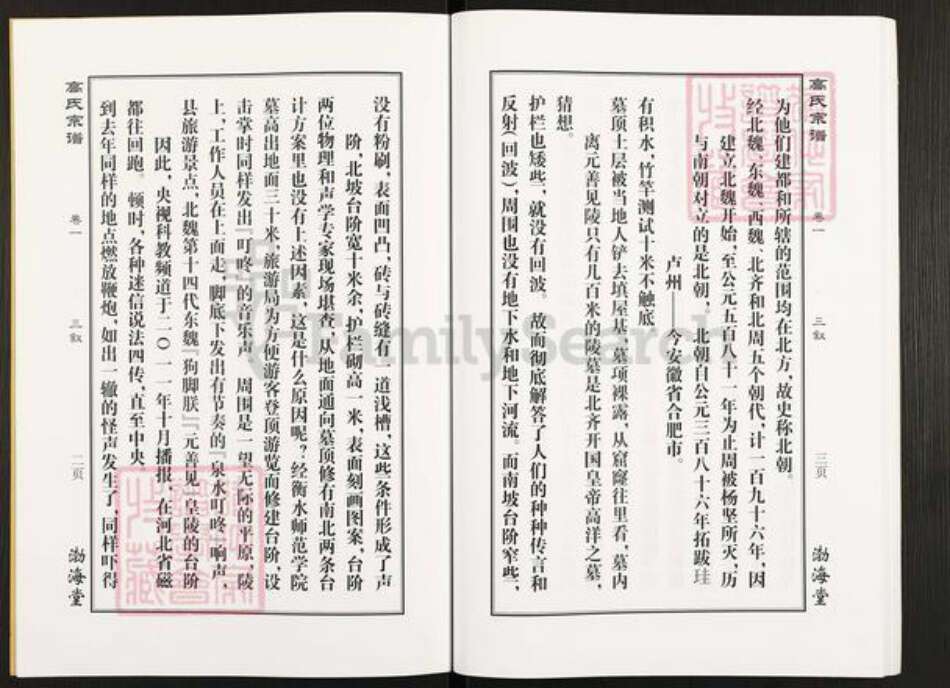 高氏宗谱 卷一 三叙 二页 渤海堂
到去年同样的地点燃放鞭炮，如出一辙的怪声发生了，同样吓得
都往回跑。顿时，各种迷信说法四传，直至中央
因此，央视科教频道于二〇一一年十月播报，在河北省磁
县旅游景点，北魏第十四代东魏『狗脚朕』元善见皇陵的台阶
上，工作人员在上面走，脚底下发出有节奏的『泉水叮咚』响声，
击掌时同样发出『叮咚』的音乐声。周围是一望无际的平原，陵
墓高出地面三十米，旅游局为方便游客登顶游览而修建台阶，设
计方案里也没有上述因素，这是什么原因呢？经衡水师范学院
两位物理和声学专家现场堪查，从地面通向墓顶修有南北两条台
阶，北坡台阶宽十米余，护栏砌高一米，表面刻画图案，台阶
没有粉刷，表面凹凸，砖与砖缝有一道浅槽，这些条件形成了声
反射（回波），周围也没有地下水和地下河流。而南坡台阶窄些，
护栏也矮些，就没有回波。故而彻底解答了人们的种种传言和
猜想。
离元善见陵只有几百米的陵墓是北齐开国皇帝高洋之墓，
墓顶土层被当地人铲去填屋基，墓项裸露，从窟窿往里看，墓内
有积水，竹竿测试十米不触底
卢州——今安徽省合肥市。
与南朝对立的是北朝，北朝自公元三百八十六年拓跋珪
建立北魏开始，至公元五百八十一年为止周被杨坚所灭，历
经北魏、东魏、西魏、北齐和北周五个朝代，计一百九十六年，因
为他们建都和所辖的范围均在北方，故史称北朝。
高氏宗谱 卷一 三叙 三页 渤海堂
FamilySearch